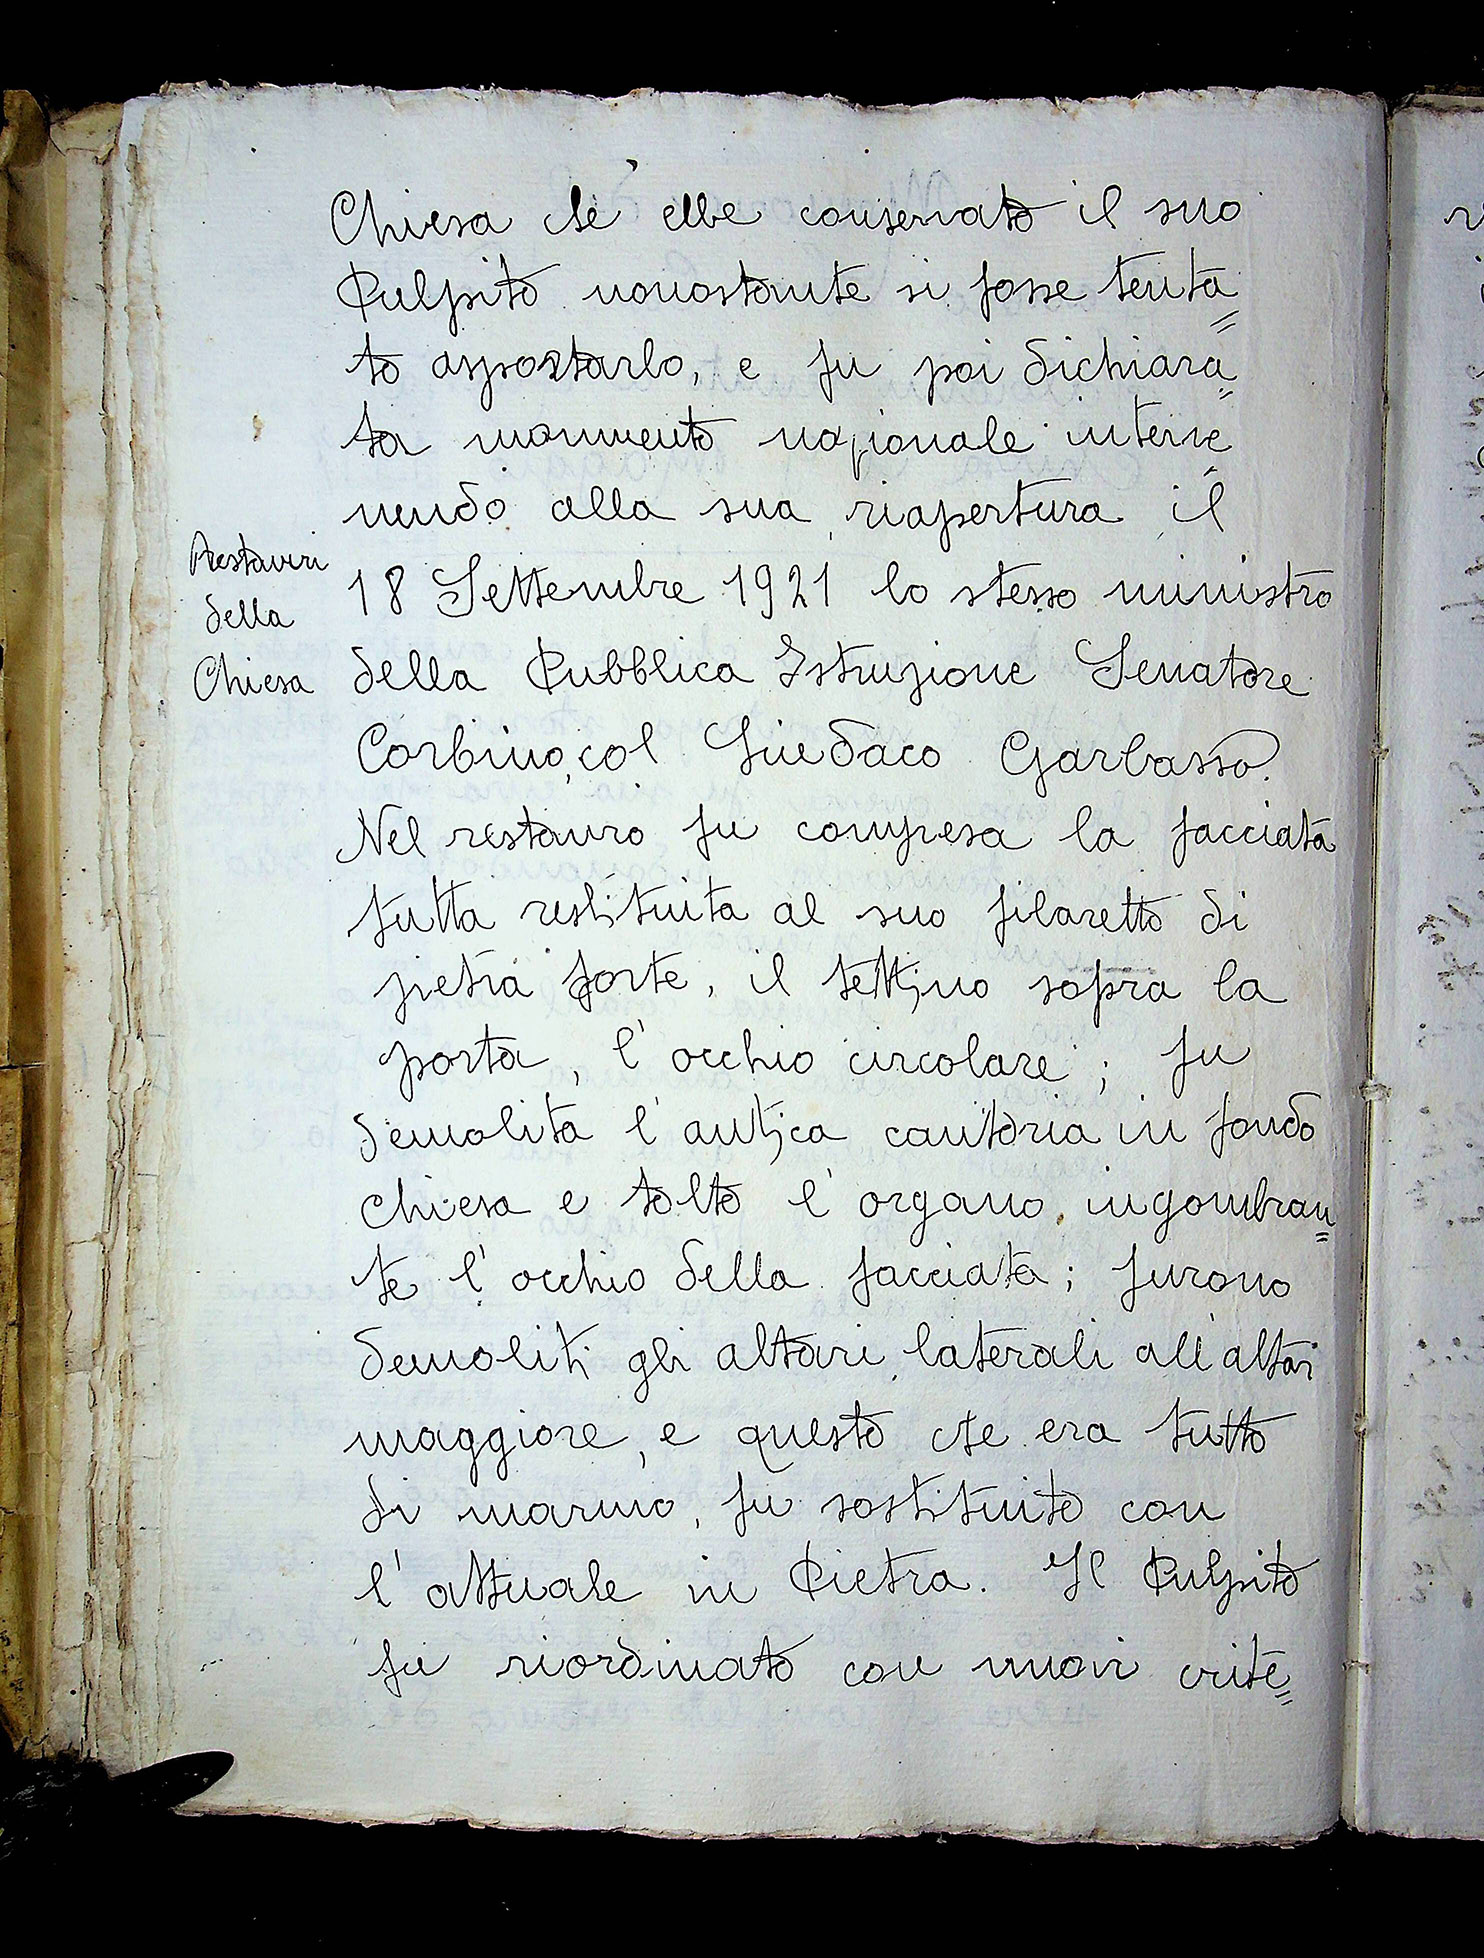 Chiesa che ebbe conservato il suo
Pulpito nonostante si fosse tenta=
to asportarlo, e fu poi dichiara=
ta monumento nazionale interve=
nendo alla sua riapertura il
Restauri
della
Chiesa
18 Settembre 1921 lo stesso ministro
della Pubblica Istruzione Senatore
Corbino, col Sindaco Garbasso.
Nel restauro fu compresa la facciata
tutta restituita al suo filaretto di
pietra forte, il tettino sopra la
porta, l'occhio circolare; fu
demolita l'antica cantoria in fondo
chiesa e tolto l'organo ingombran=
te l'occhio della facciata; furono
demoliti gli altari laterali all'altar
maggiore, e questo che era tutto
di marmo, fu sostituito con
l'attuale in Pietra. Il Pulpito
fu riordinato con nuovi crite=